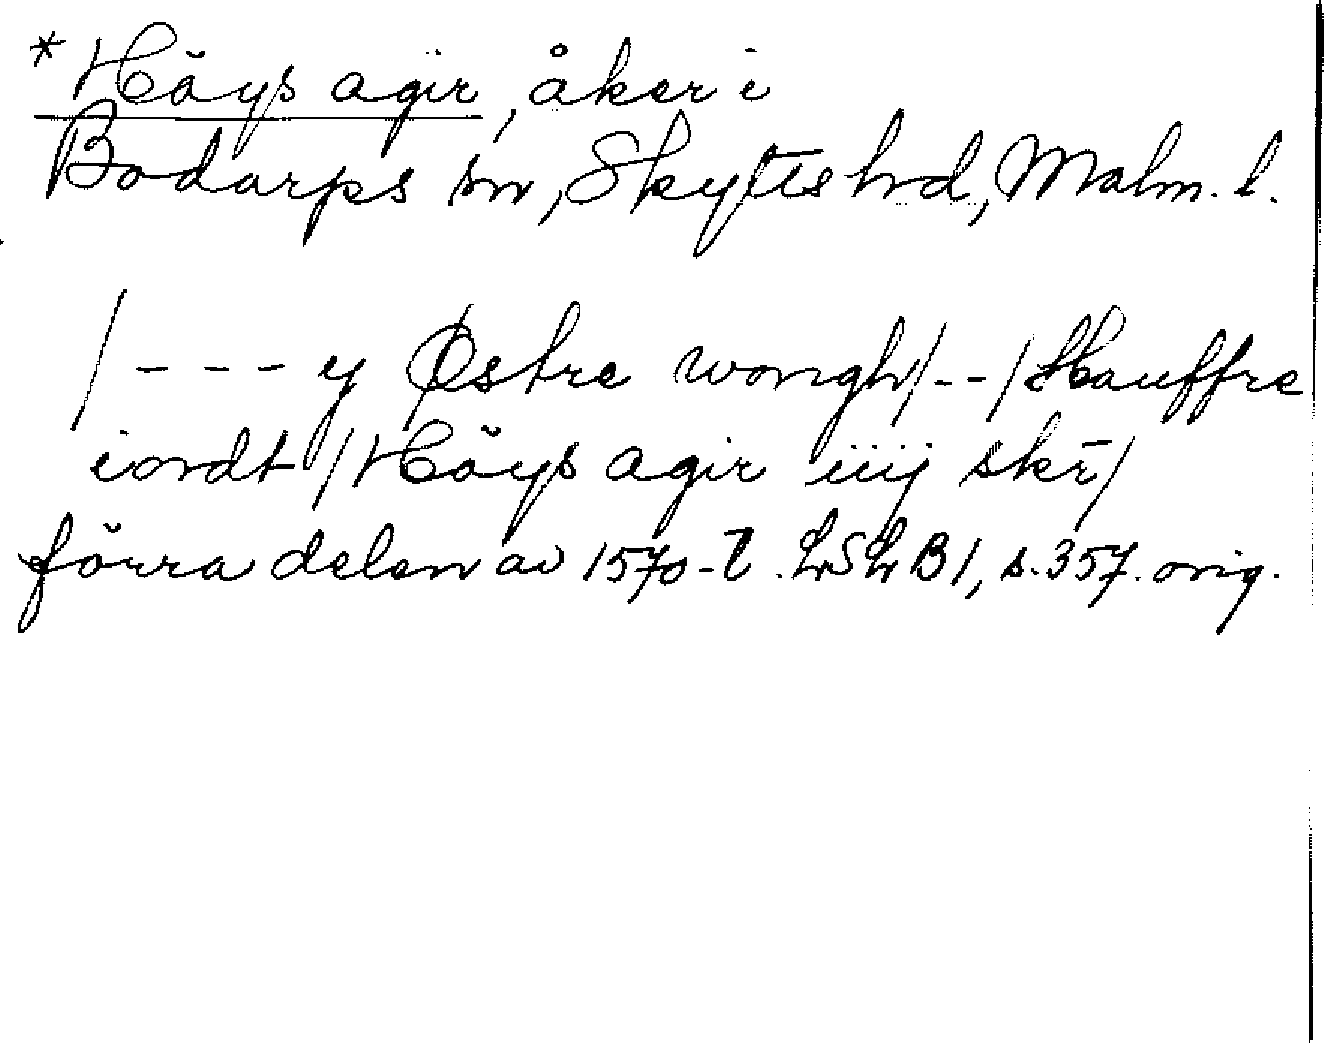 *Höys agir, åker i
Bodarps sn, Skytts hd, Malm. l.
/---y Østre wongh/--/Hauffre
iordt/Höys agir iiij skr̄/
förra delen av 1570-t. LSLB1, s.357. orig.